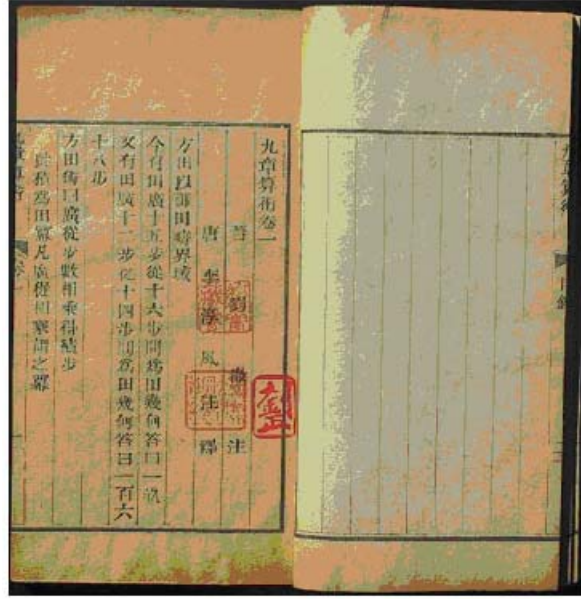 九章算術
目錄
九章算術卷一
晉 劉徽 注
唐 李淳風 注釋
方田以御田疇界域
今有田廣十五步從十六步問爲田幾何答曰一畝
又有田廣十二步從十四步問爲田幾何答曰一百六
十八步
方田術曰廣從步數相乘得積步
此積爲田冪凡廣從相乘謂之冪
九章算術
卷一